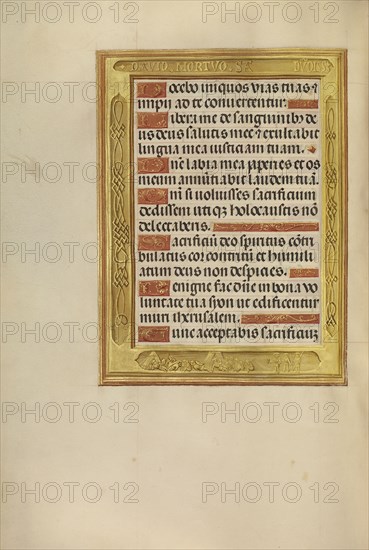 DAVID MORTVO
Docebo iniquos vias tuas et
impij ad te convertentur.
Libera me de sanguinibus de
us deus salutis mee et exultabit
lingua mea iusticiam tuam.
Domine labia mea aperies et os
meum annuntiabit laudem tuam.
Quoniam si voluisses sacrificium
dedissem utique holocaustis non
delectaberis.
Sacrificium deo spiritus contri
bulatus cor contritum et humili
atum deus non despicies.
Benigne fac domine in bona vo
luntate tua syon ut edificentur
muri iherusalem.
Tunc acceptabis sacrificium
PHOTO 12 PHOTO 12
PHOTO 12 PHOTO 12
PHOTO 12 PHOTO 12
PHOTO 12 PHOTO 12
PHOTO 12 PHOTO 12
PHOTO 12 PHOTO 12
PHOTO 12 PHOTO 12